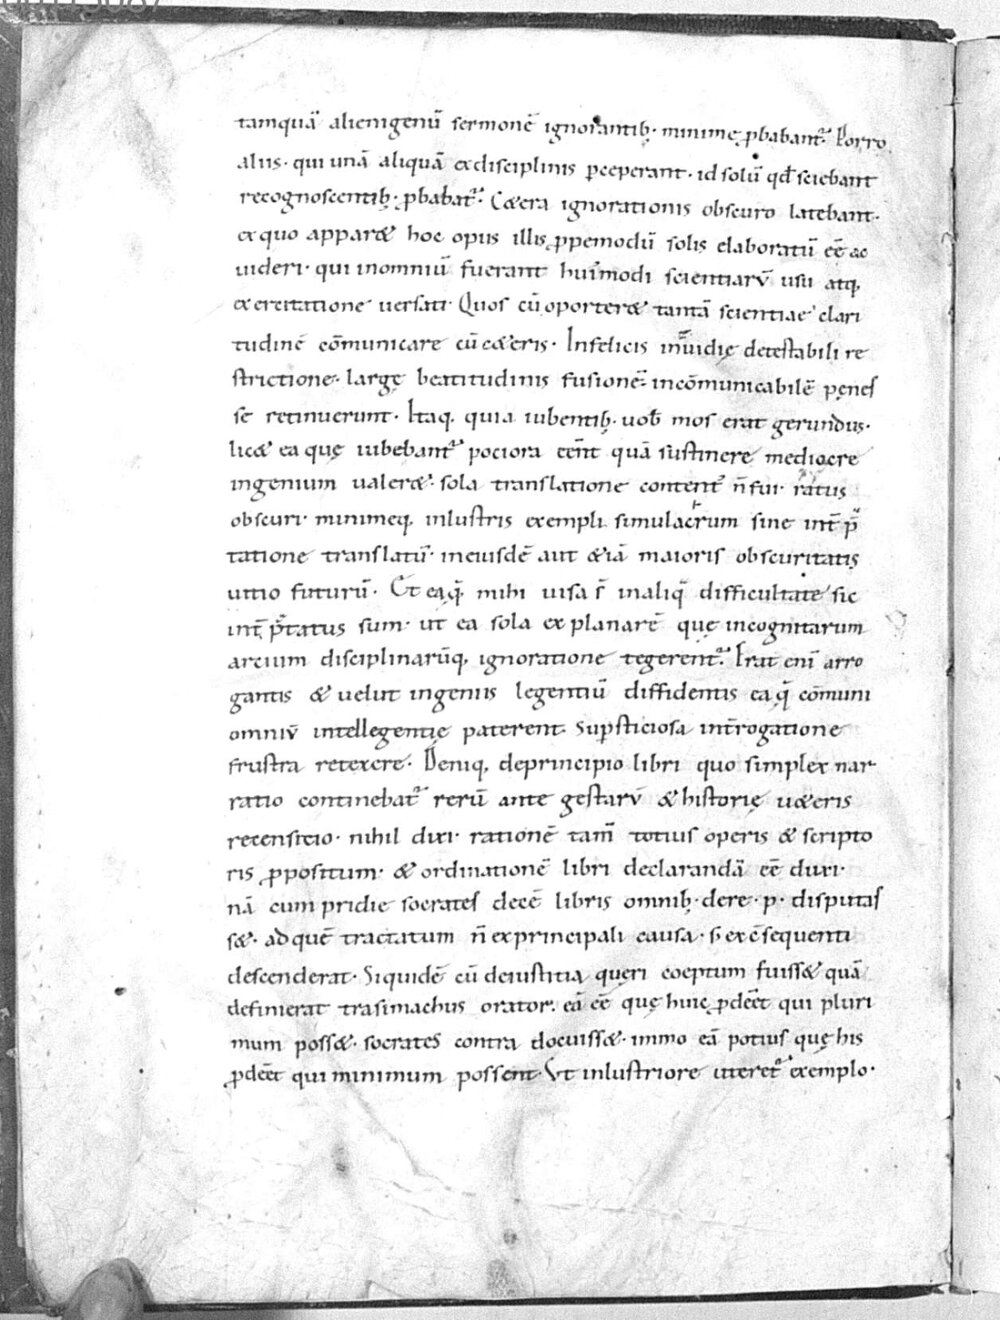 tamquā alienigenū sermonē ignorantib; minimę ꝓbabant᷑. Porro
aliis· qui unā aliquā ex disciplinis ꝑceperant· id solū qđ sciebant
recognoscentib; ꝓbabat᷑· C&era ignorationis obscuro latebant·
ex quo appar& hoc opus illis ꝓpemodū solis elaboratū eē ac
uideri· qui inomniū fuerant hui᷒modi scientiarū usu atq;
exercitatione uersati· Quos cū oporter& tantā scientiae clari
tudinē cōmunicare cū c&eris· Infelicis inuidię detestabili re
strictione· largę beatitudinis fusionē· incōmunicabilē penes
se retinuerunt· Itaq; quia iubentib; uob mos erat gerundus·
lic& ea quę iubebant᷑ pociora eēnt quā sustinere mediocre
ingenium ualer&· sola translatione content᷒ ñ fui· ratus
obscuri· minimeq; inlustris exempli simulacrum sine int̄ p̄
tatione translatū· ineiusdē aut &iā maioris obscuritatis
uitio futurū· Et ea q̨ mihi uisa s̄ inaliq̄ difficultate sic
int̄ p̄tatus sum· ut ea sola explanarē quę incognitarum
arcium disciplinarūq; ignoratione tegerent᷑. Erat enī arro
gantis & uelut ingeniis legentiū diffidentis ea q̨ cōmuni
omniū intellegentię paterent sup̄sticiosa int̄rogatione
frustra retexere· Deniq; deprincipio libri quo simplex nar
ratio continebat᷑ rerū ante gestarū & historię u&eris
recensitio· nihil dixi· rationē tam̄ totius operis & scripto
ris ꝓpositum· & ordinationē libri declarandā eē duxi·
nā cum pridie socrates decē libris omnib; de re·p· disputas
s&· ad quē tractatum ñ ex principali causa· s; ex c̄sequenti
descenderat· Siquidē cū deiustitia quęri coeptum fuiss& quā
definierat trasimachus orator· eā eē quę huic ꝓdeēt qui pluri
mum poss&· socrates contra docuiss&· immo eā potius quę his
ꝓdeēt qui minimum possent· Ut inlustriore uteret᷑ exemplo·